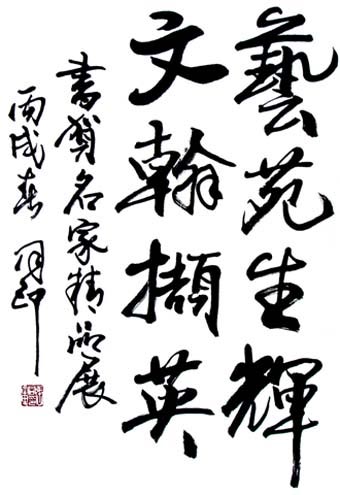 藝苑生輝
文翰擷英
書賀名家精品展
丙戌春